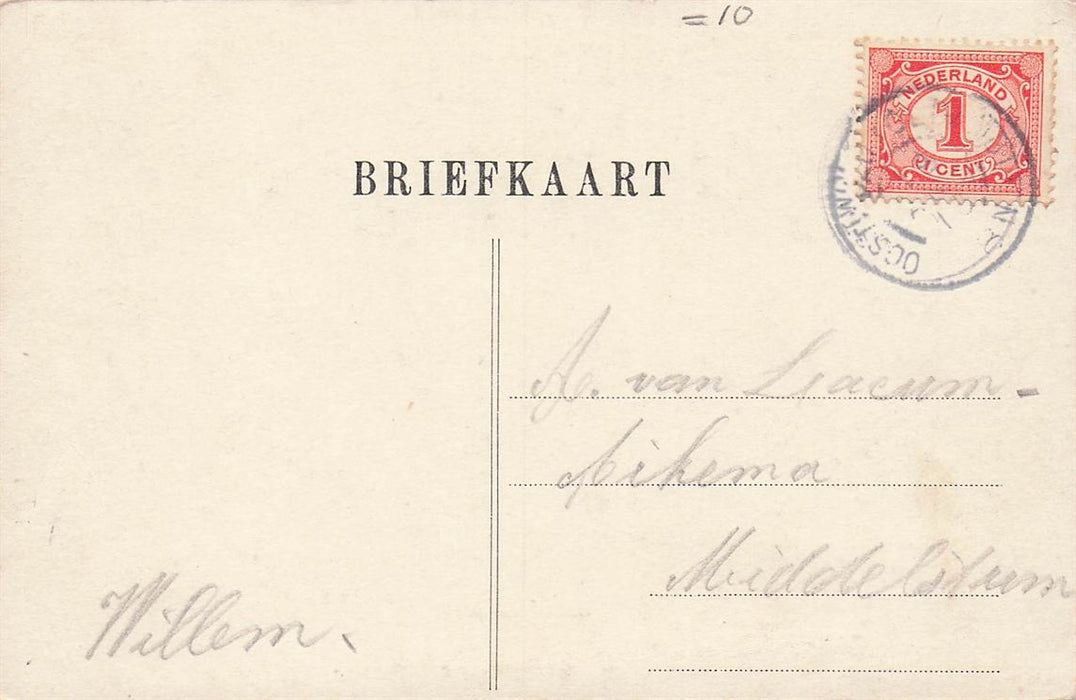 =10
NEDERLAND
1
1 CENT
BRIEFKAART
A. van Lacum-
Aikema
Middelstum
Willem.